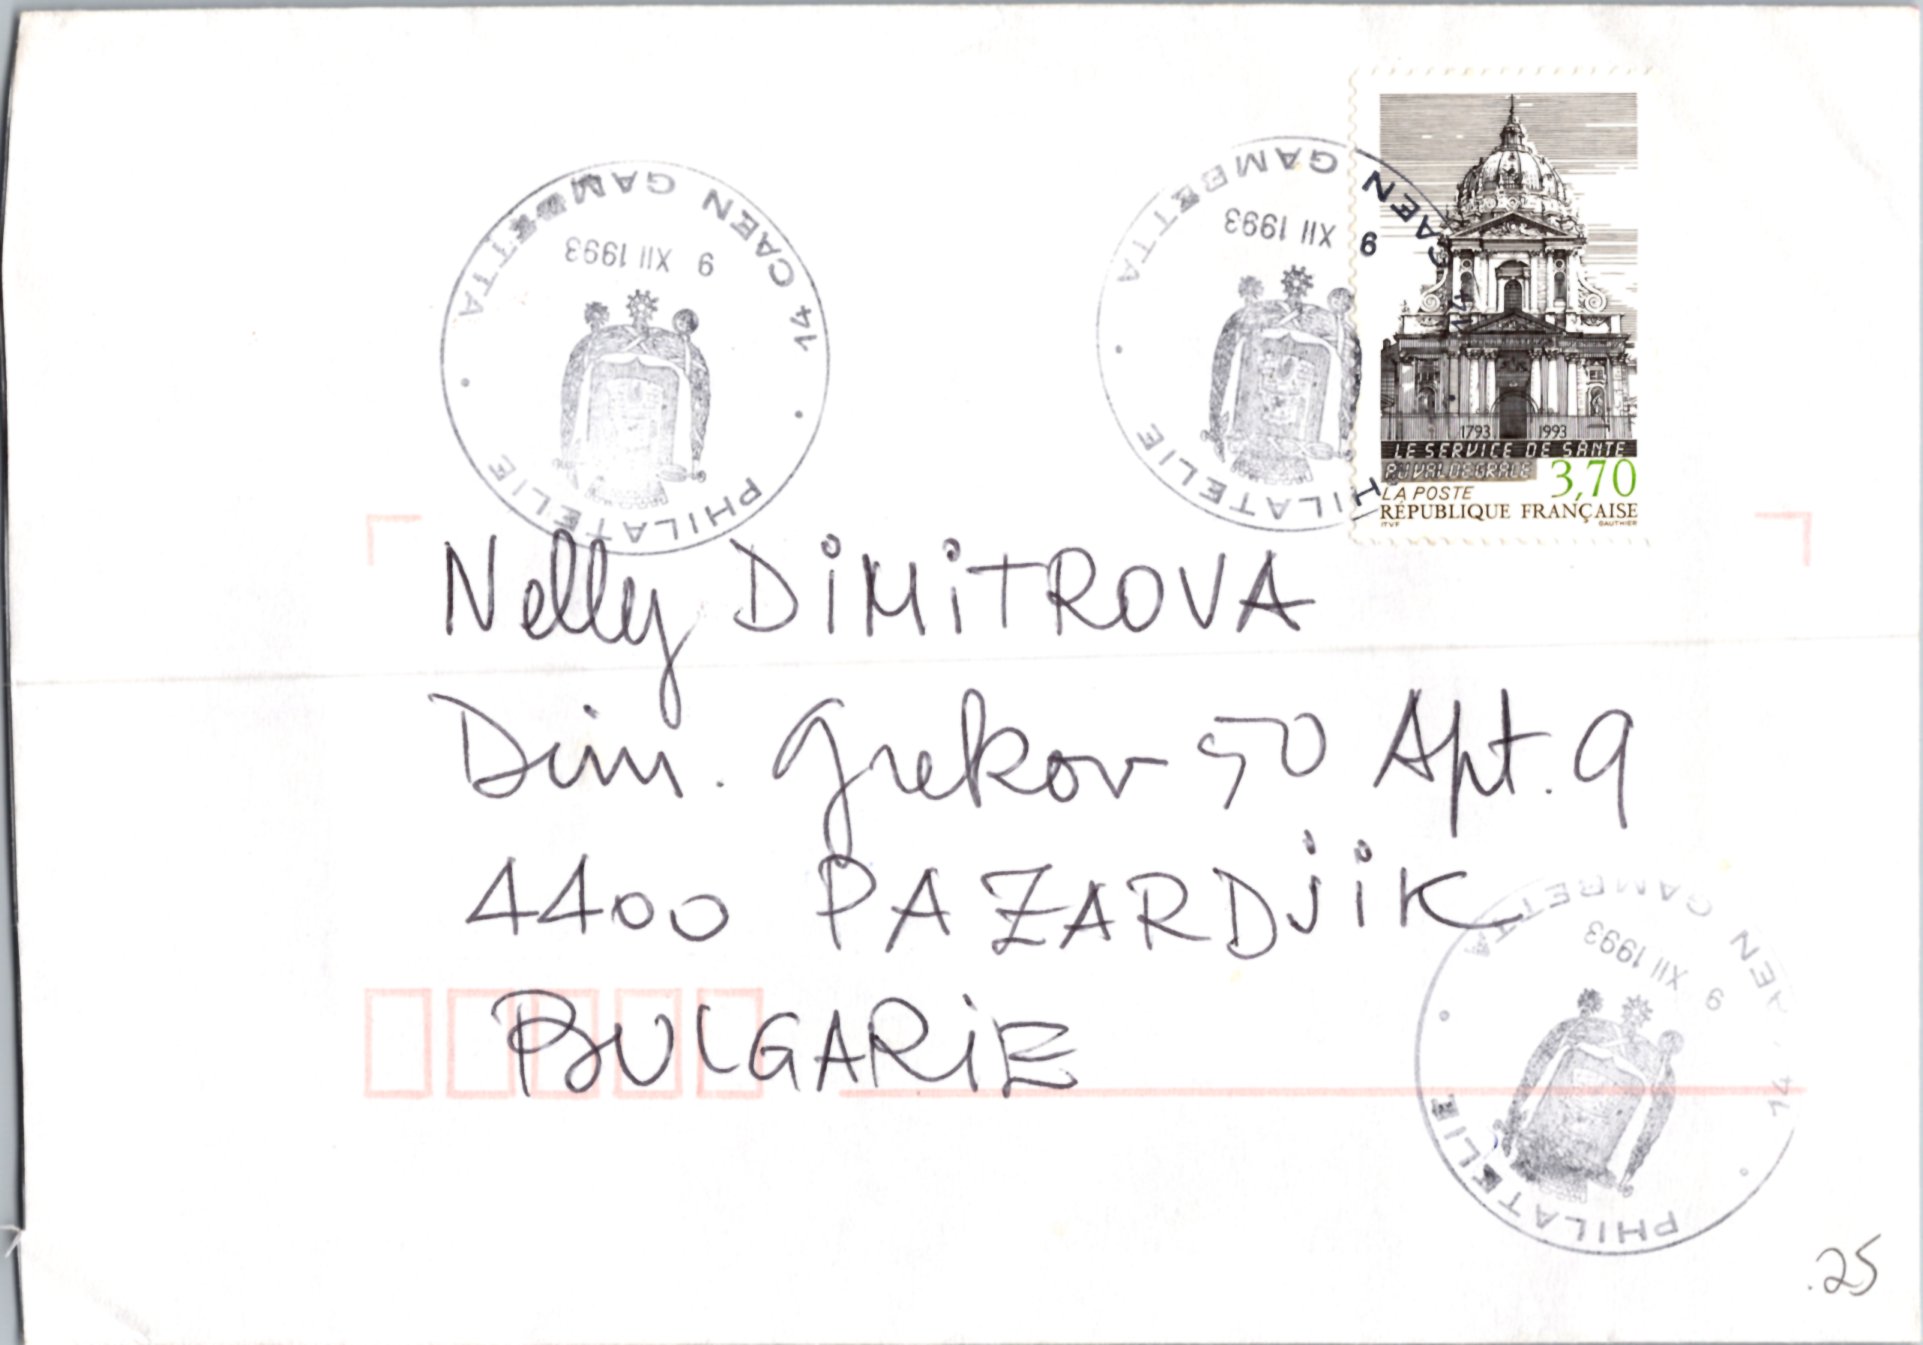 14 CAEN GAMBETTA
9 XII 1993
PHILATELIE
14 CAEN GAMBETTA
9 XII 1993
PHILATELIE
1793 1993
LE SERVICE DE SANTE
AU VAL DE GRACE
3,70
LA POSTE
RÉPUBLIQUE FRANÇAISE
ITVF GAUTHIER
Nelly DiMiTROVA
Dim. Grekov 50 Apt. 9
4400 PAZARDjiK
BULGARiE
14 CAEN GAMBETTA
9 XII 1993
PHILATELIE
.25